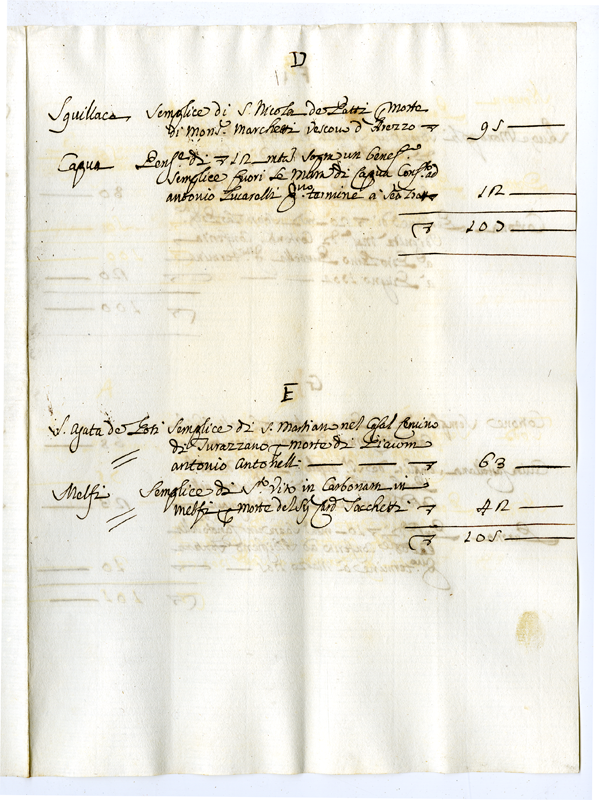 D
Squillace Semplice di S. Nicola de Patti p morte
di Mons.r Marchetti Vescovo d'Arezzo 95
Capua Pens.e di 12 m.ta sopra un benef.o
semplice fuori le mura di Capua Conf.o ad
antonio Lucarelli termine a 12
107
E
S. Agata de Goti Semplice di S. Martiano nel Casal
di Durazzano p morte di
antonio Antonelli 63
Melfi Semplice di S.to Vito in Carbonara in
melfi p morte del Sig. Card Sacchetti 42
105